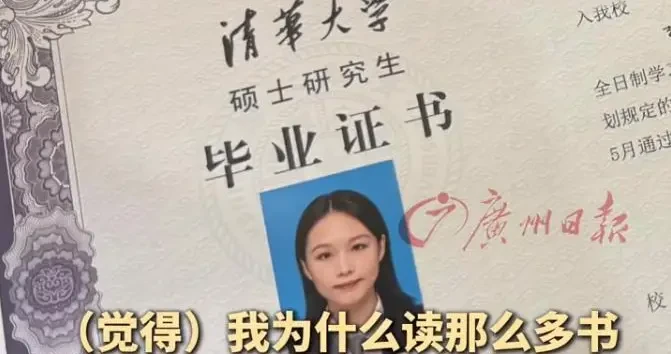 清华大学
硕士研究生
毕业证书
入我校
全日制学
划规定的
5月通过
廣州日报
校
（觉得）我为什么读那么多书